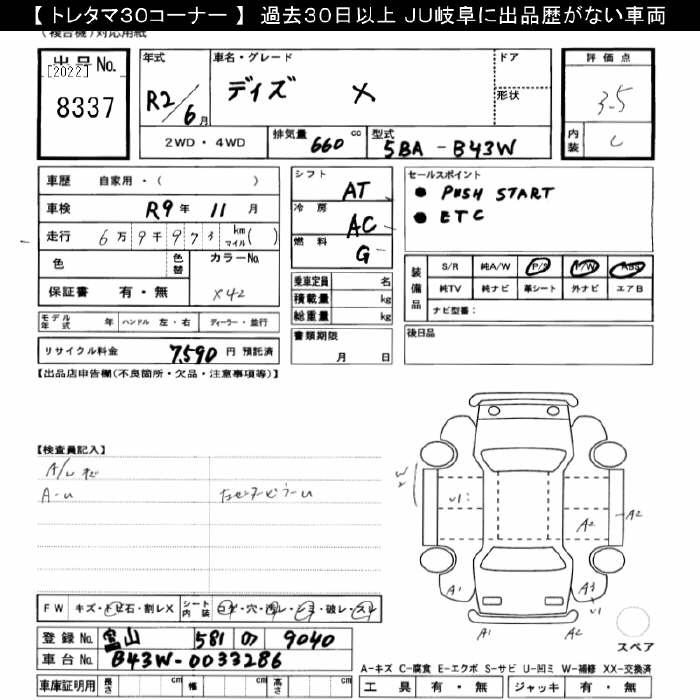 【 トレタマ30コーナー 】 過去30日以上 JU岐阜に出品歴がない車両
(複合機)対応用紙
出品No.
[2022]
8337
年式
R2/6月
車名・グレード
デイズ X
ドア
形状
評価点
3.5
内装
C
2WD・4WD
排気量 660 cc
型式 5BA-B43W
車歴 自家用・( )
車検 R9年 11月
走行 6万9千973 km マイル( )
色
色替
カラーNo.
X42
保証書 有・無
モデル年式 年 ハンドル 左・右 ディーラー・並行
リサイクル料金 7,590 円 預託済
シフト AT
冷房 AC
燃料 G
乗車定員 名
積載量 kg
総重量 kg
書類期限
月 日
セールスポイント
● PUSH START
● ETC
装備品
S/R 純A/W P/S P/W ABS
純TV 純ナビ 革シート 外ナビ エアB
ナビ型番:
後日品
【出品店申告欄(不良箇所・欠品・注意事項等)】
【検査員記入】
A-U
W2
U1
A2
A2
A1
A3
A1
A2
スペア
FW キズ・トビ石・割レX
シート内装 コゲ・穴・汚レ・シミ・破レ・スレ
登録No. 富山 581 の 9040
車台No. B43W-0033286
車庫証明用 長さ cm 幅 cm 高さ cm
A-キズ C-腐食 E-エクボ S-サビ U-凹ミ W-補修 XX-交換済
工具 有・無 ジャッキ 有・無